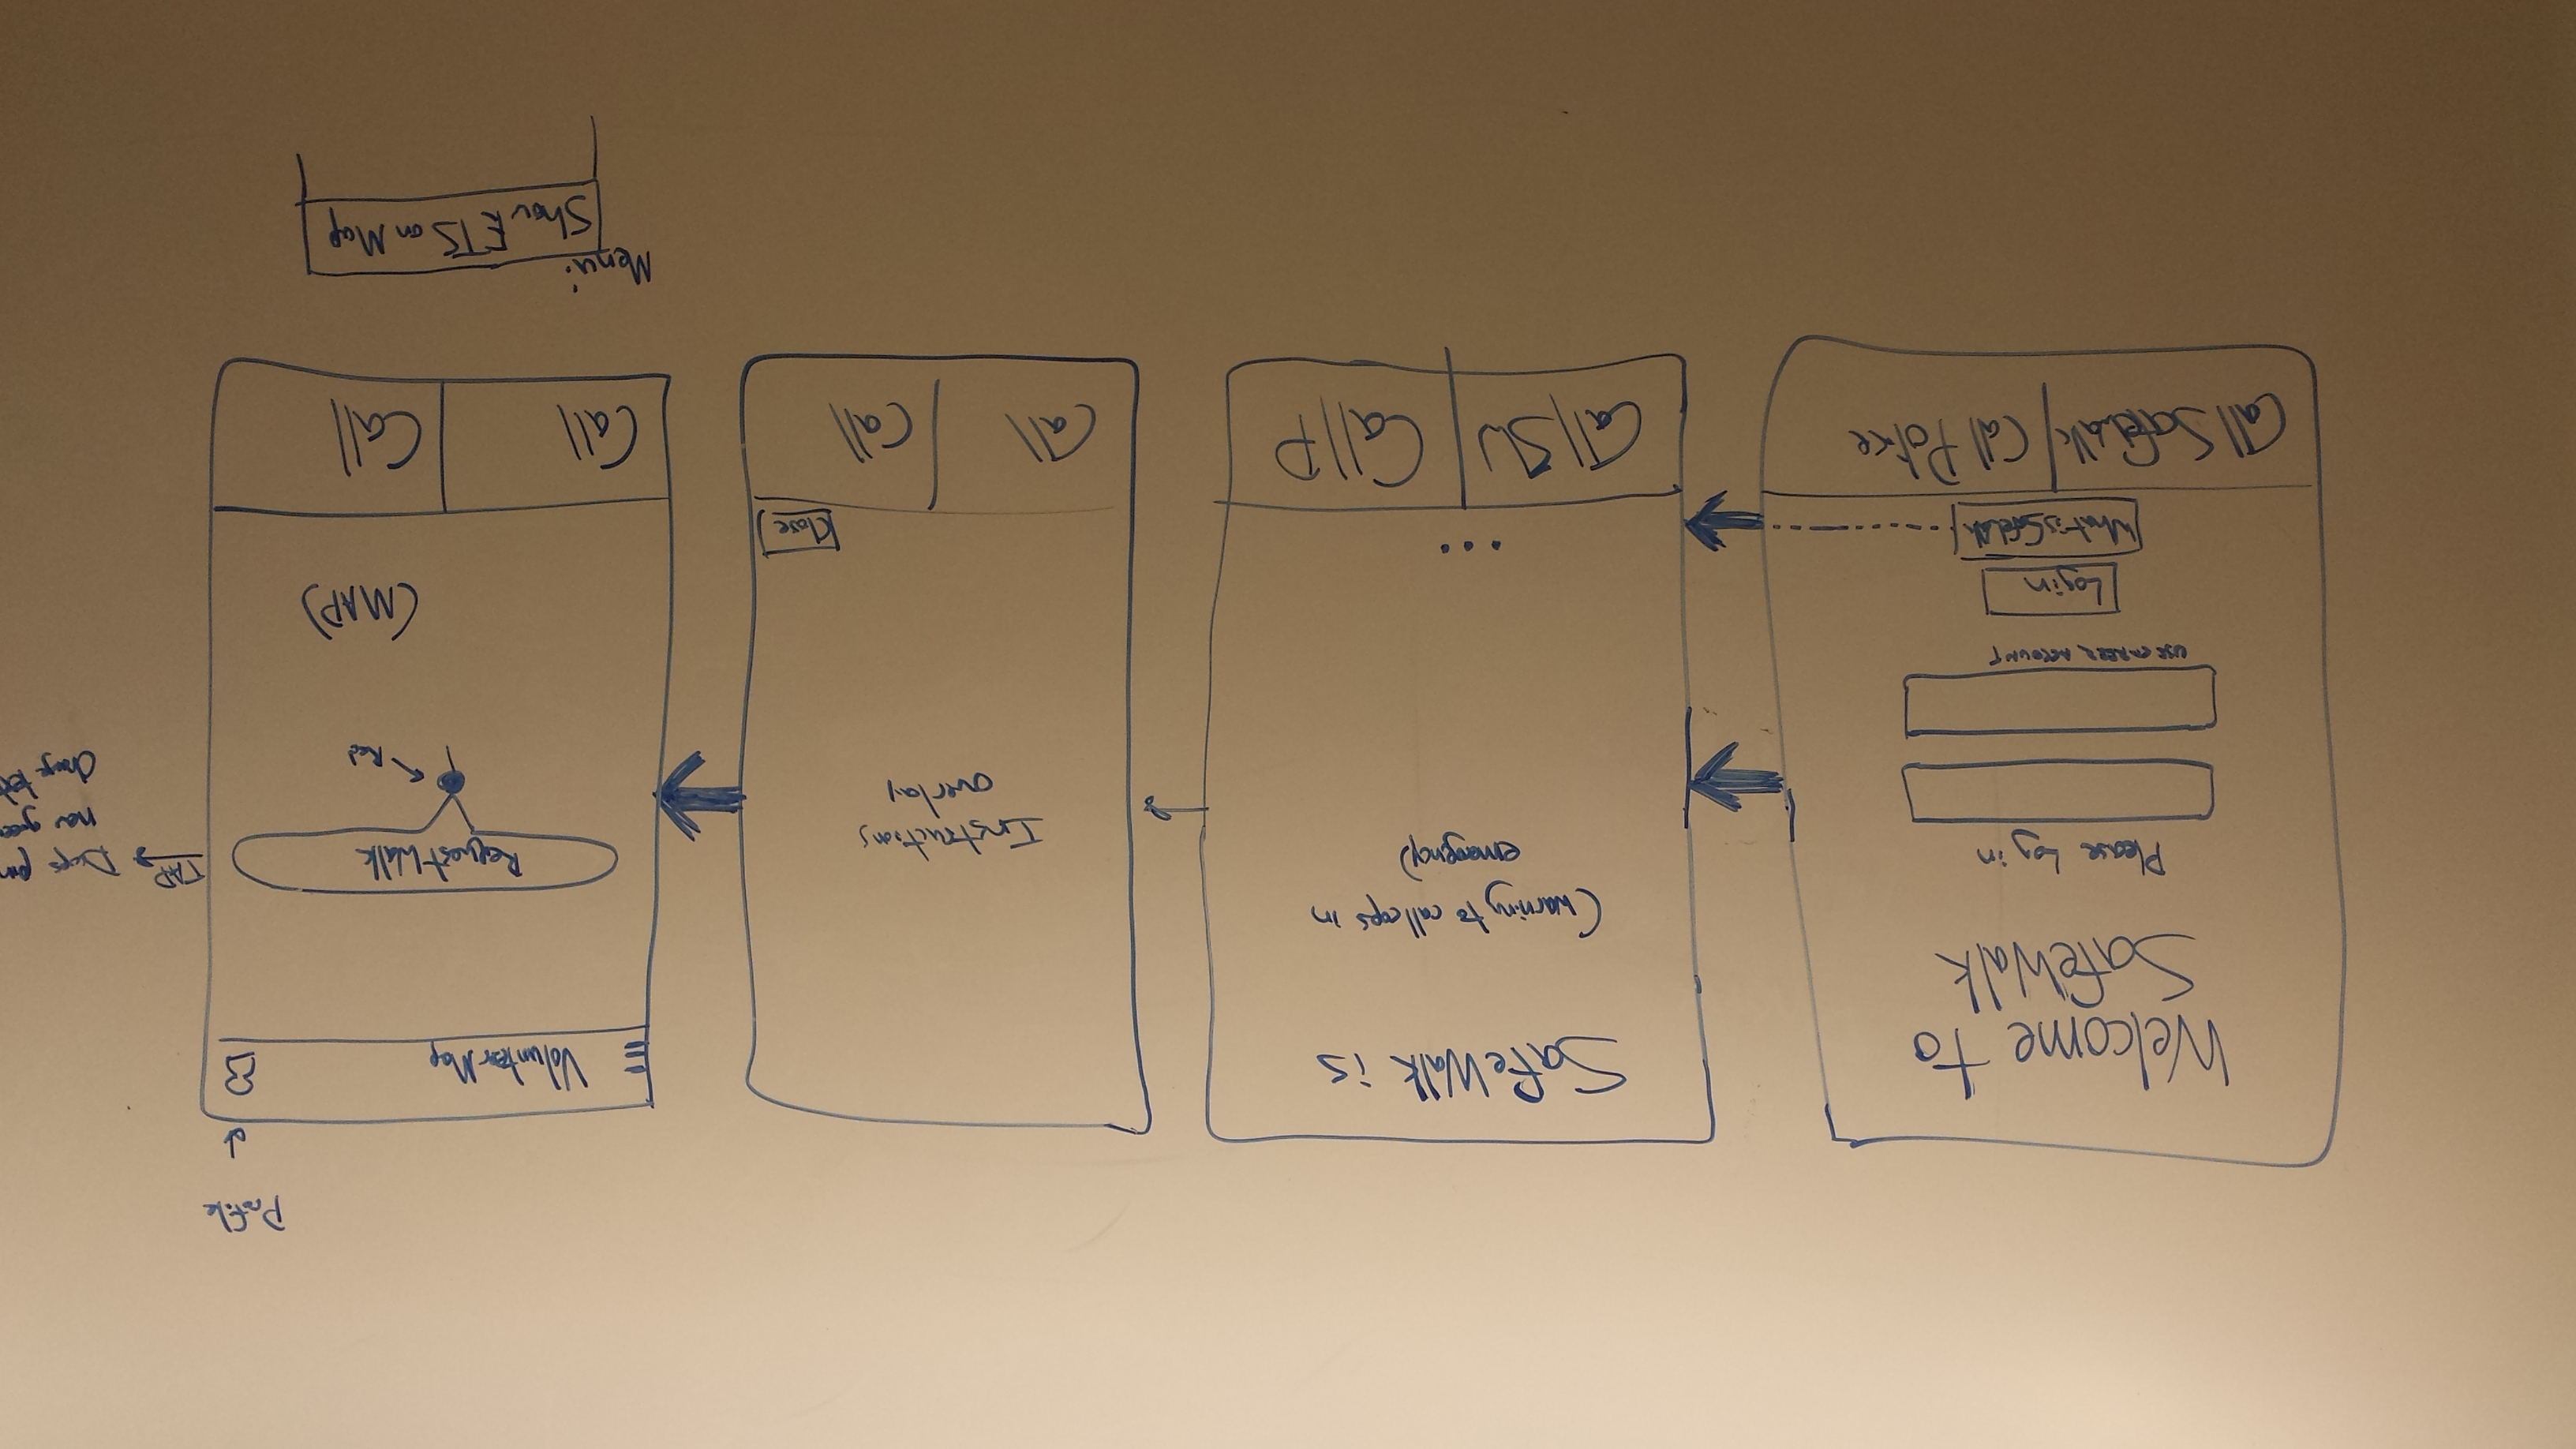 Welcome to
SafeWalk
Please Log in
USE CAREER ACCOUNT
Login
What is SafeWalk
Call SafeWalk
Call Police
SafeWalk is
(warning to call cops in
emergency)
...
Call SW
Call P
Instructions
overlay
Close
Call
Call
Profile
Volunteer Map
Request Walk
Red
(MAP)
Call
Call
TAP
Drops
now
change text
Menu:
Show ETS on Map